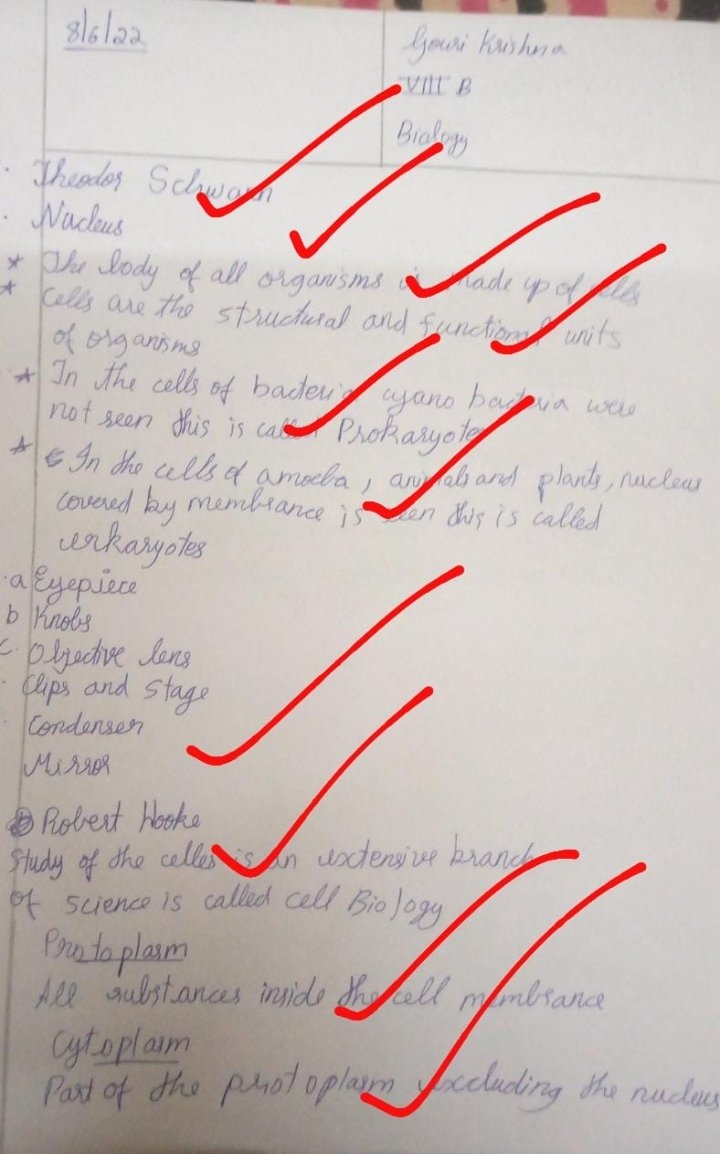 8/6/22
Gouri Krishna
VIII B
Biology
Theodor Schwann
Nucleus
* The body of all organisms is made up of cells
* Cells are the structural and functional units
of organisms
* In the cells of bacteria cyano bacteria were
not seen this is called Prokaryotes
* In the cells of amoeba, animals and plants, nucleus
covered by membrance is seen this is called
eukaryotes
a Eyepiece
b Knobs
C. Objective lens
Clips and Stage
Condenser
Mirror
Robert Hooke
Study of the celles is an extensive branch
of science is called cell Biology
Protoplasm
All substances inside the cell membrance
Cytoplasm
Part of the protoplasm excluding the nucleus